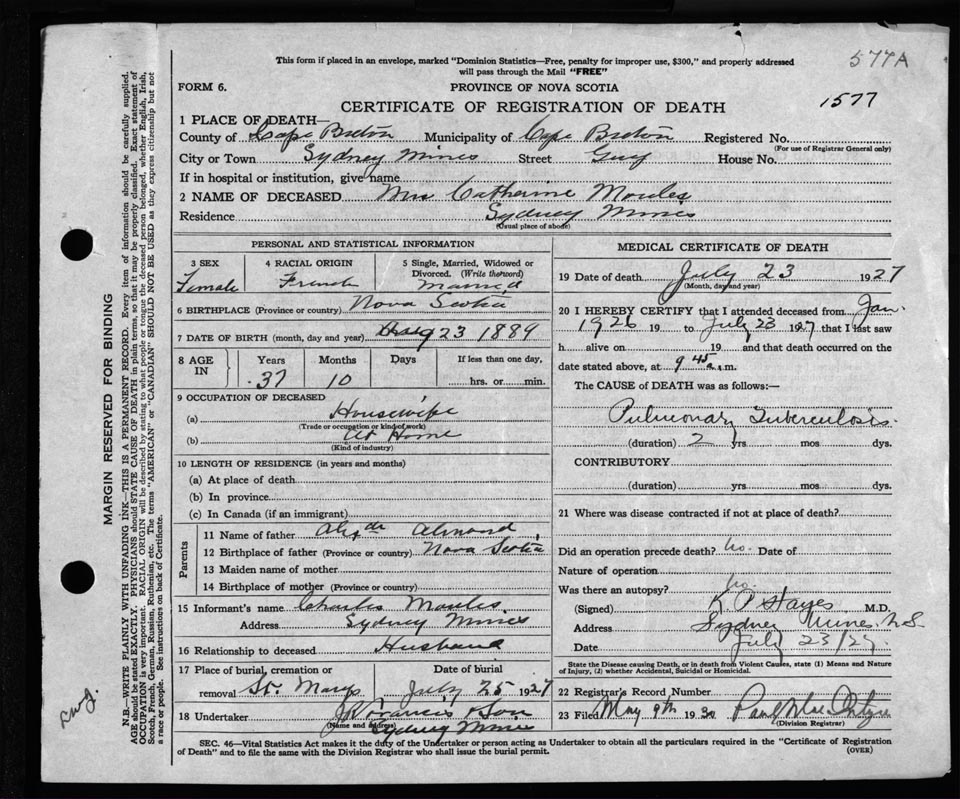 577A
This form if placed in an envelope, marked "Dominion Statistics—Free, penalty for improper use, $300," and properly addressed
will pass through the Mail "FREE"
FORM 6.
PROVINCE OF NOVA SCOTIA
CERTIFICATE OF REGISTRATION OF DEATH
1577
1 PLACE OF DEATH—
County of Cape Breton Municipality of Cape Breton Registered No.
(For use of Registrar General only)
City or Town Sydney Mines Street Guy House No.
If in hospital or institution, give name
2 NAME OF DECEASED Mrs Catherine Moules
Residence Sydney Mines
(Usual place of abode)
PERSONAL AND STATISTICAL INFORMATION
3 SEX
Female
4 RACIAL ORIGIN
French
5 Single, Married, Widowed or
Divorced. (Write the word)
Married
6 BIRTHPLACE (Province or country) Nova Scotia
7 DATE OF BIRTH (month, day and year) 23 1889
8 AGE IN
Years 37
Months 10
Days
If less than one day,
hrs. or min.
9 OCCUPATION OF DECEASED
(a) Housewife
(Trade or occupation or kind of work)
(b) At Home
(Kind of industry)
10 LENGTH OF RESIDENCE (in years and months)
(a) At place of death
(b) In province
(c) In Canada (if an immigrant)
Parents
11 Name of father Alexdr Almond
12 Birthplace of father (Province or country) Nova Scotia
13 Maiden name of mother
14 Birthplace of mother (Province or country)
15 Informant's name Charles Moules
Address Sydney Mines
16 Relationship to deceased Husband
17 Place of burial, cremation or
removal St. Marys
Date of burial
July 25 1927
18 Undertaker & Son
(Name and address)
Sydney Mines
MEDICAL CERTIFICATE OF DEATH
19 Date of death July 23 1927
(Month, day and year)
20 I HEREBY CERTIFY that I attended deceased from Jan.
1926 19 to July 23 1927 that I last saw
h alive on 19 and that death occurred on the
date stated above, at 9 45 a.m.
The CAUSE of DEATH was as follows:—
Pulmonary Tuberculosis
(duration) 2 yrs mos dys.
CONTRIBUTORY
(duration) yrs mos dys.
21 Where was disease contracted if not at place of death?
Did an operation precede death? No. Date of
Nature of operation
Was there an autopsy? No.
(Signed) P Hayes M.D.
Address Sydney Mines N.S
Date July 23/27
State the Disease causing Death, or in death from Violent Causes, state (1) Means and Nature
of Injury, (2) whether Accidental, Suicidal or Homicidal.
22 Registrar's Record Number
23 Filed May 9th 1930 Paul MacIntyre
(Division Registrar)
SEC. 46—Vital Statistics Act makes it the duty of the Undertaker or person acting as Undertaker to obtain all the particulars required in the "Certificate of Registration
of Death" and to file the same with the Division Registrar who shall issue the burial permit.
(OVER)
MARGIN RESERVED FOR BINDING
N.B.—WRITE PLAINLY WITH UNFADING INK—THIS IS A PERMANENT RECORD. Every item of information should be carefully supplied.
AGE should be stated EXACTLY. PHYSICIANS should STATE CAUSE OF DEATH in plain terms, so that it may be properly classified. Exact statement of
OCCUPATION is very important. RACIAL ORIGIN will be described by stating to what people or tongue the deceased person belonged, whether English, Irish,
Scotch, French, German, Russian, Ruthenian, etc. The terms "AMERICAN" or "CANADIAN" SHOULD NOT BE USED as they express citizenship but not
a race or people. See instructions on back of Certificate.